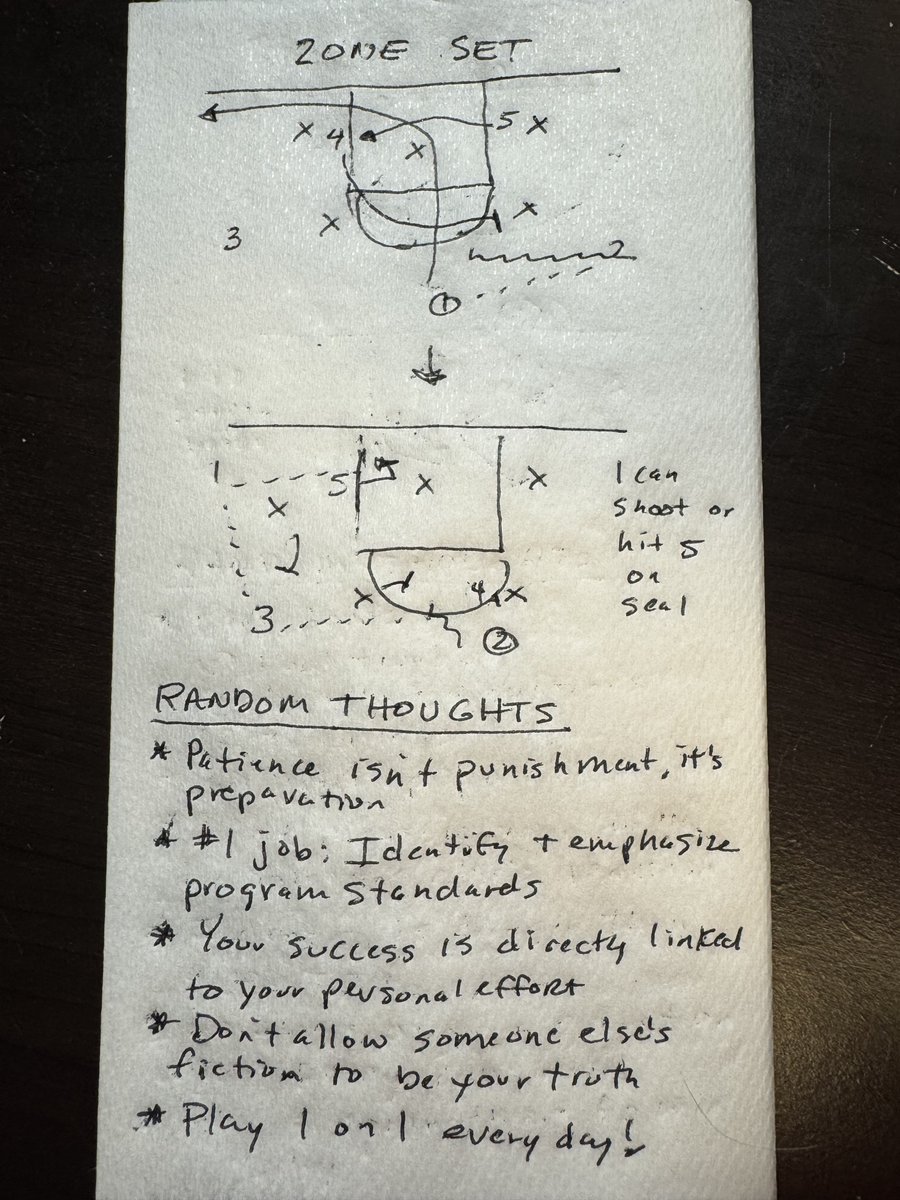 ZONE SET
X 4 X 5 X
X X
3
2
1
1 5 X X
X
X 4 X
3 2
1 can
shoot or
hit 5
on
seal
RANDOM THOUGHTS
* Patience isn't punishment, it's
preparation
* #1 job: Identify + emphasize
program standards
* Your success is directly linked
to your personal effort
* Don't allow someone else's
fiction to be your truth
* Play 1 on 1 every day!